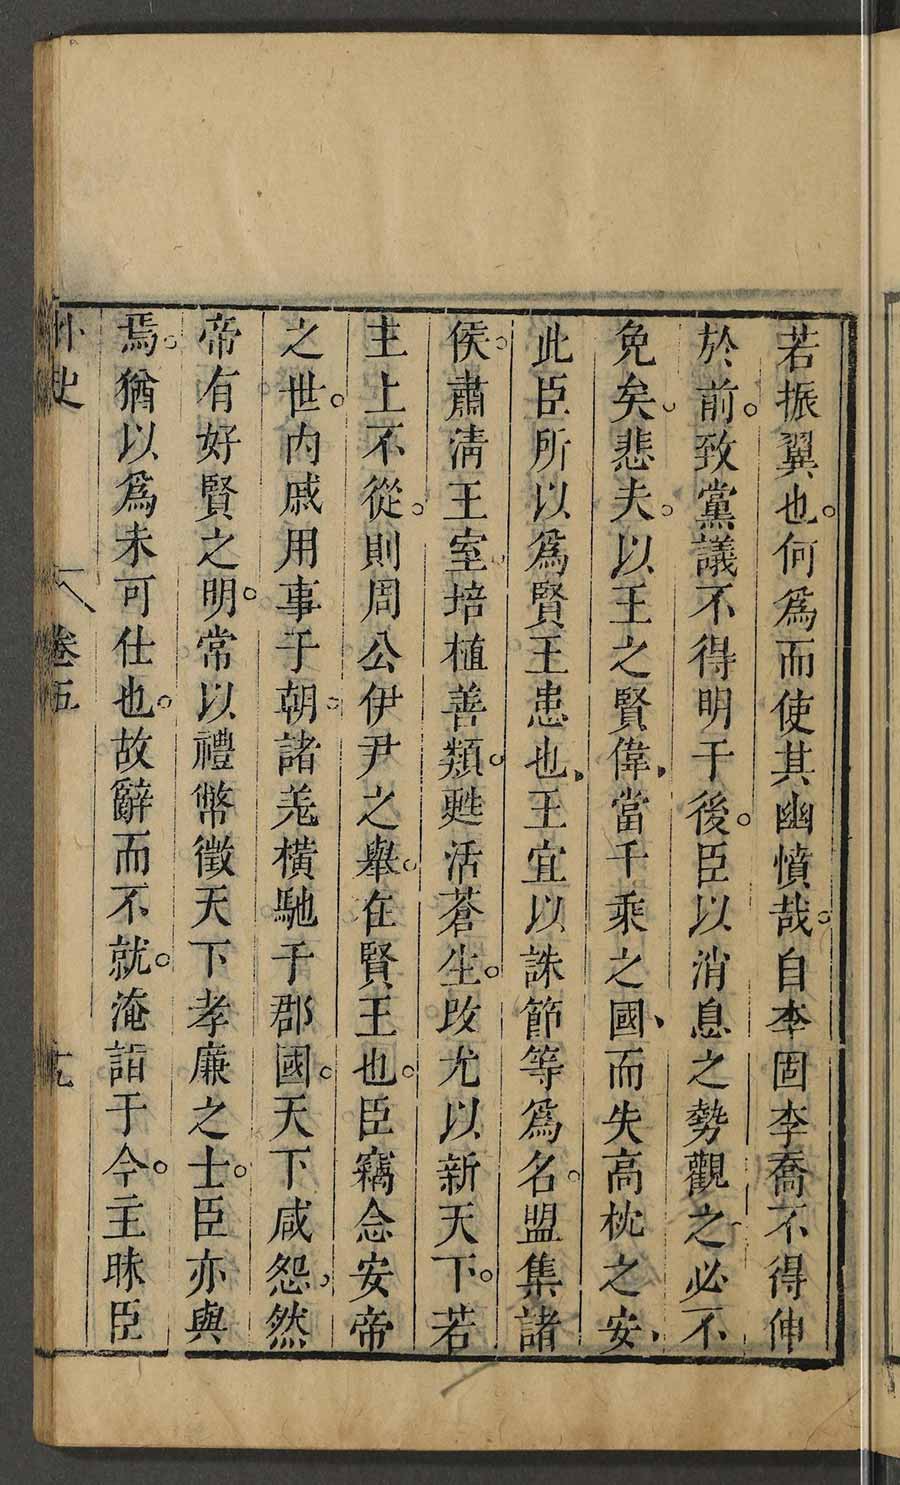 若振翼也。何爲而使其幽憤哉。自李固李喬不得伸
於前。致黨議不得明于後。臣以消息之勢觀之必不
免矣。悲夫。以王之賢偉、當千乘之國、而失高枕之安、
此臣所以爲賢王患也、王宜以誅節等爲名。盟集諸
侯。肅清王室。培植善類。甦活蒼生。改尤以新天下。若
主上不從。則周公伊尹之舉。在賢王也。臣竊念安帝
之世。内戚用事于朝。諸羗橫馳于郡國。天下咸怨、然
帝有好賢之明。常以禮幣徵天下孝廉之士。臣亦與
焉。猶以爲未可仕也。故辭而不就。淹詣于今。主昧臣
外史 卷五